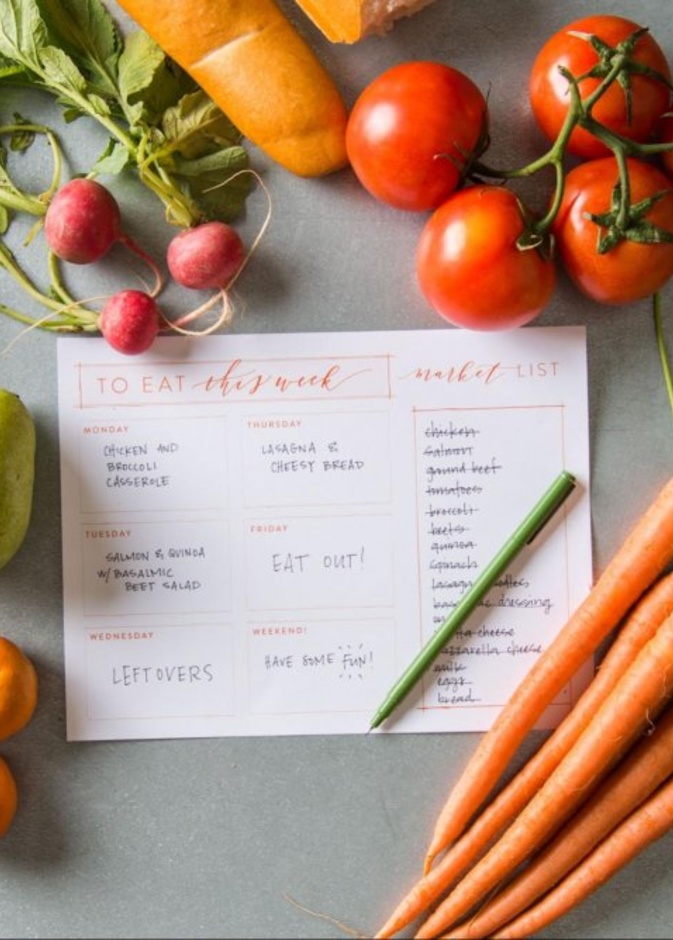 TO EAT this week
MONDAY
CHICKEN AND
BROCCOLI
CASSEROLE
TUESDAY
SALMON & QUINOA
W/ BASALMIC
BEET SALAD
WEDNESDAY
LEFTOVERS
THURSDAY
LASAGNA &
CHEESY BREAD
FRIDAY
EAT OUT!
WEEKEND!
HAVE SOME FUN!
market LIST
chicken
salmon
ground beef
tomatoes
broccoli
beets
quinoa
spinach
lasagna
dressing
cheese
mozzarella cheese
milk
eggs
bread